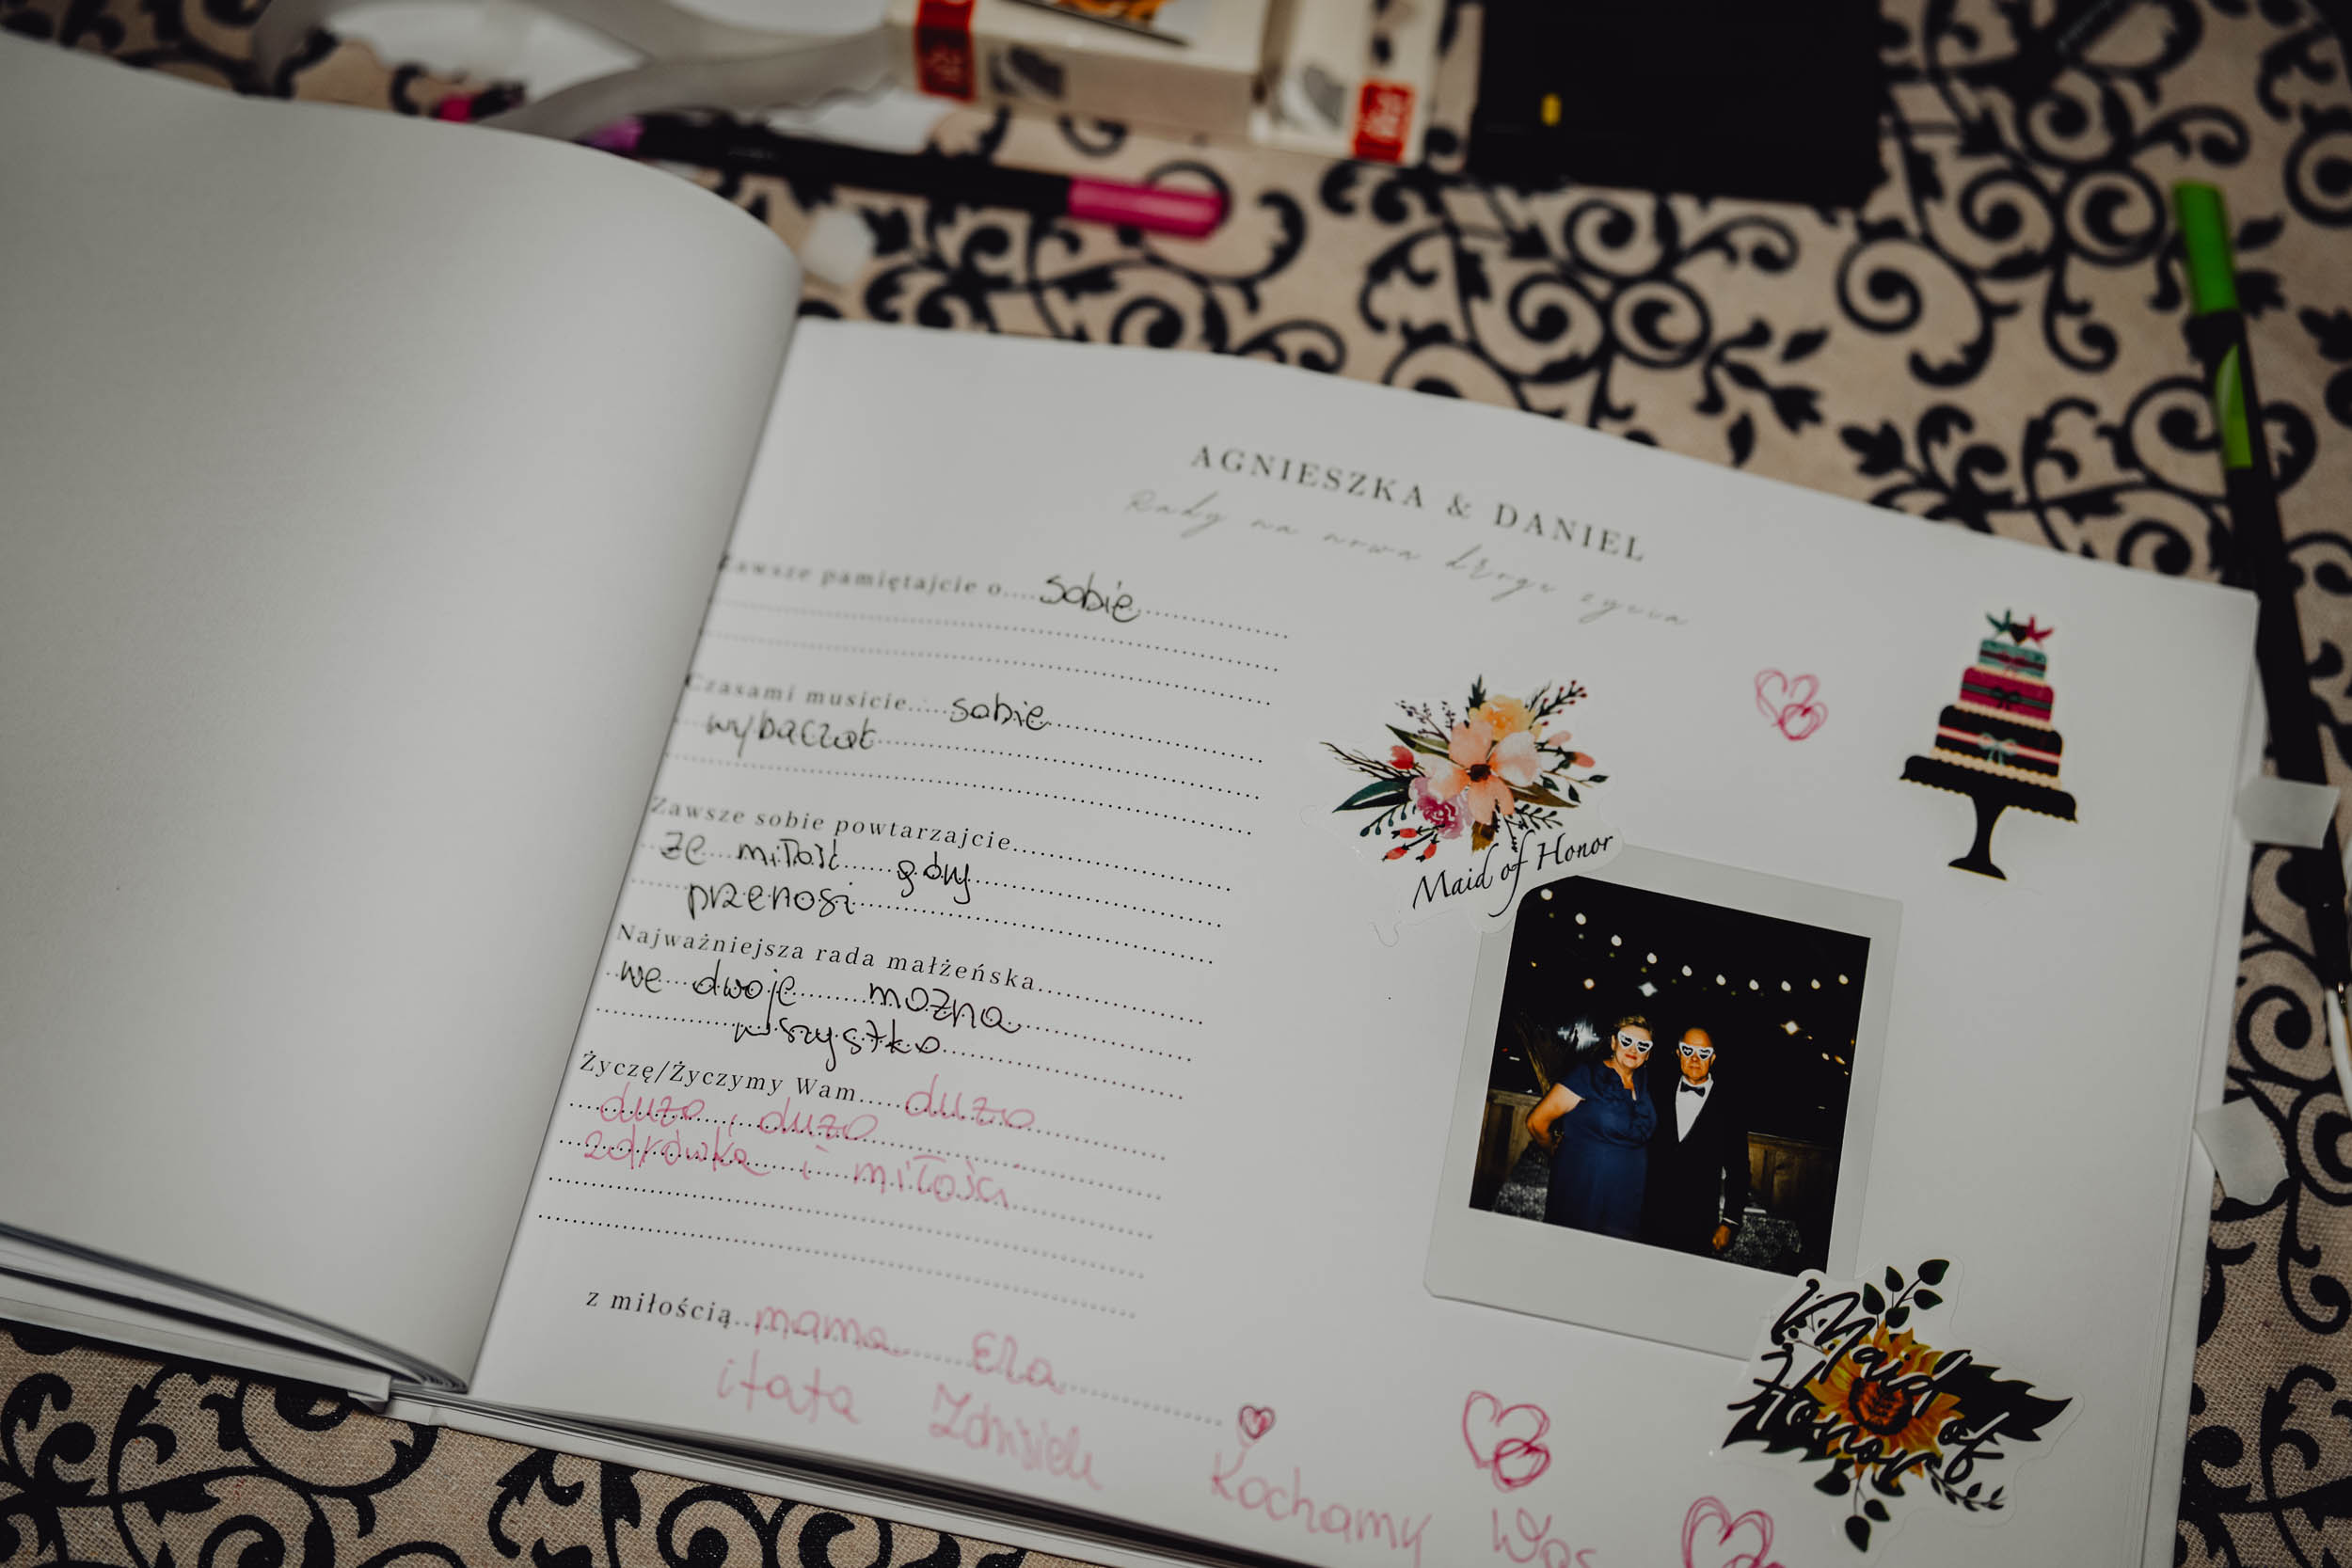 AGNIESZKA & DANIEL
Rady na nowa drogę życia
Zawsze pamiętajcie o.... sobie
Czasami musicie..... sobie
wybaczać
Zawsze sobie powtarzajcie
że miłość góry
przenosi
Najważniejsza rada małżeńska
we dwoje można
wszystko
Życzę/Życzymy Wam.... dużo
dużo, dużo
zdrówka i miłości
z miłością.. mama Ela
i tata Zdzisiek
Kochamy Was
Maid of Honor
Maid of Honor